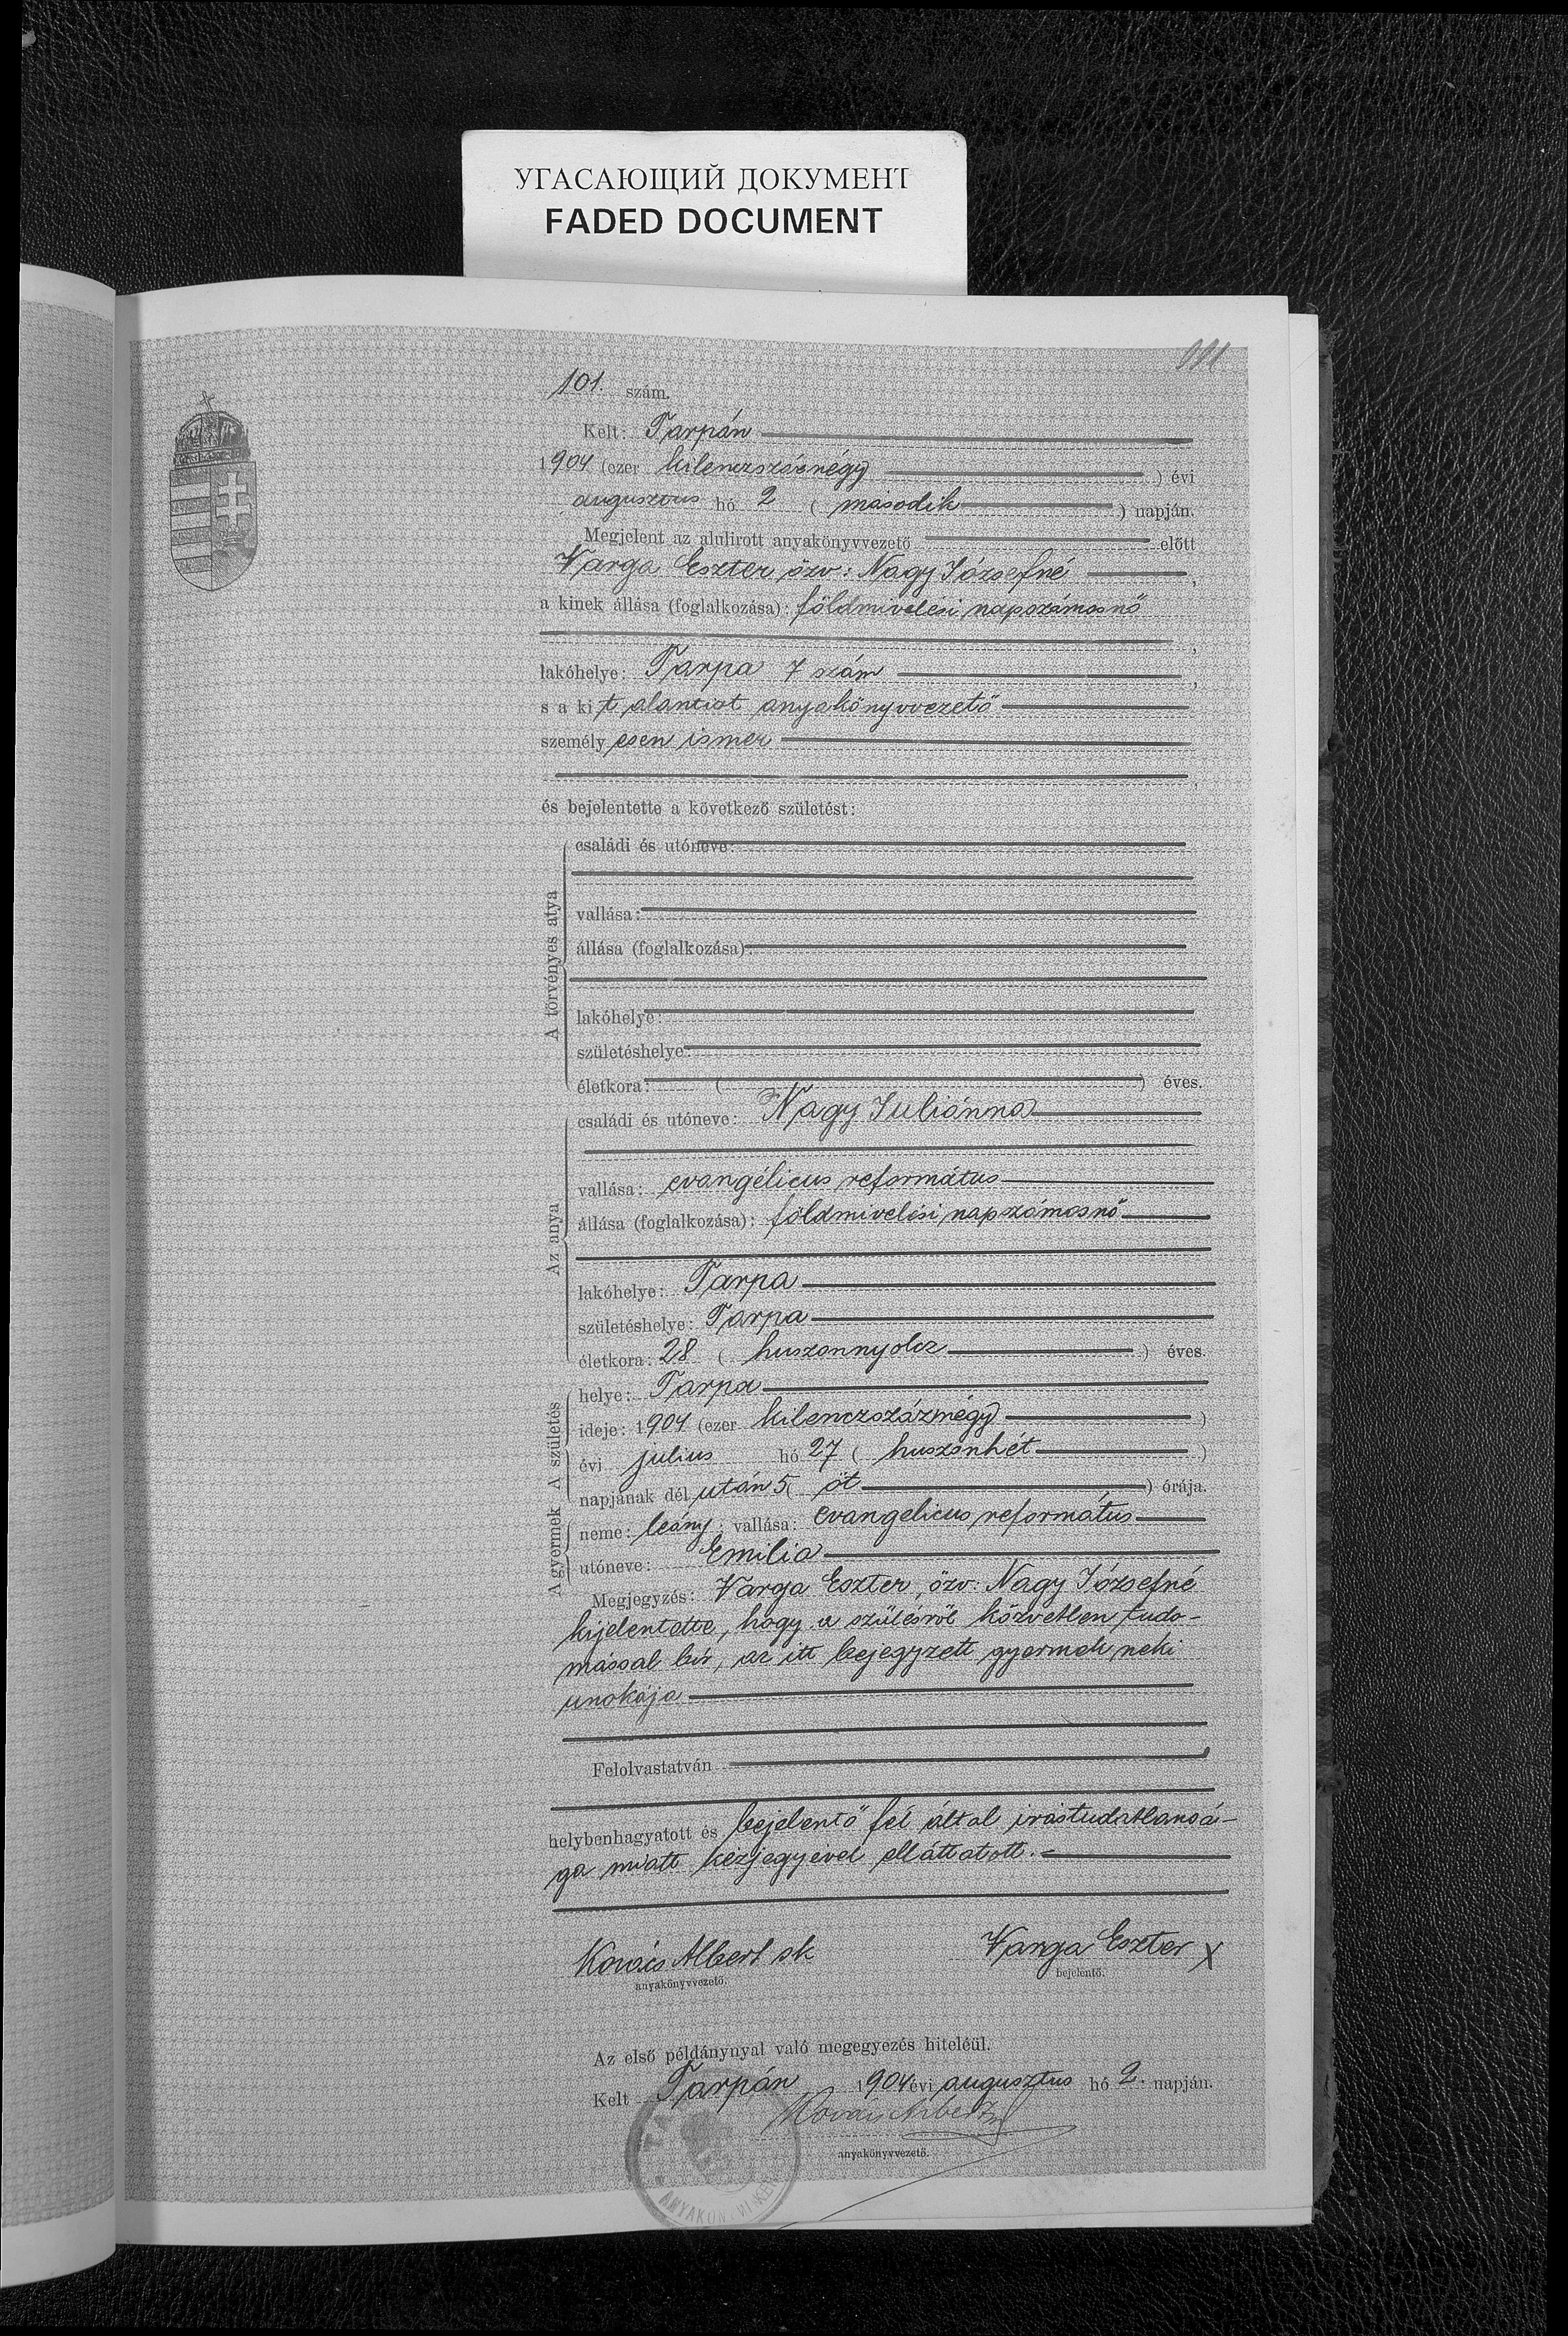 УГАСАЮЩИЙ ДОКУМЕНТ
FADED DOCUMENT
101. szám.
Kelt: Tarpán
1904 (ezer kilenczszáznégy) évi
augusztus hó 2 (második) napján.
Megjelent az alulirott anyakönyvvezető előtt
Varga Eszter özv: Nagy Józsefné,
a kinek állása (foglalkozása): földmivelési napszámosnő
,
lakóhelye: Tarpa 7 szám,
s a kit alantirt anyakönyvvezető
személyesen ismer
,
és bejelentette a következő születést:
A törvényes atya
családi és utóneve:
vallása:
állása (foglalkozása):
lakóhelye:
születéshelye:
életkora: ( ) éves.
Az anya
családi és utóneve: Nagy Juliánna
vallása: evangélicus református
állása (foglalkozása): földmivelési napszámosnő
lakóhelye: Tarpa
születéshelye: Tarpa
életkora: 28 (huszonnyolcz) éves.
A születés
helye: Tarpa
ideje: 1904 (ezer kilenczszáznégy)
évi julius hó 27 (huszonhét)
napjának dél után 5 (öt) órája.
A gyermek
neme: leány; vallása: evangelicus református
utóneve: Emilia
Megjegyzés: Varga Eszter, özv: Nagy Józsefné
kijelentette, hogy a szülésről közvetlen tudo-
mással bir, az itt bejegyzett gyermek neki
unokája
Felolvastatván
helybenhagyatott és bejelentő fél által irástudatlansá-
ga miatt kézjegyével elláttatott.
Kovács Albert sk Varga Eszter X
anyakönyvvezető. bejelentő.
Az első példánynyal való megegyezés hiteléül.
Kelt Tarpán 1904 évi augusztus hó 2. napján.
Kovács Albert
anyakönyvvezető.